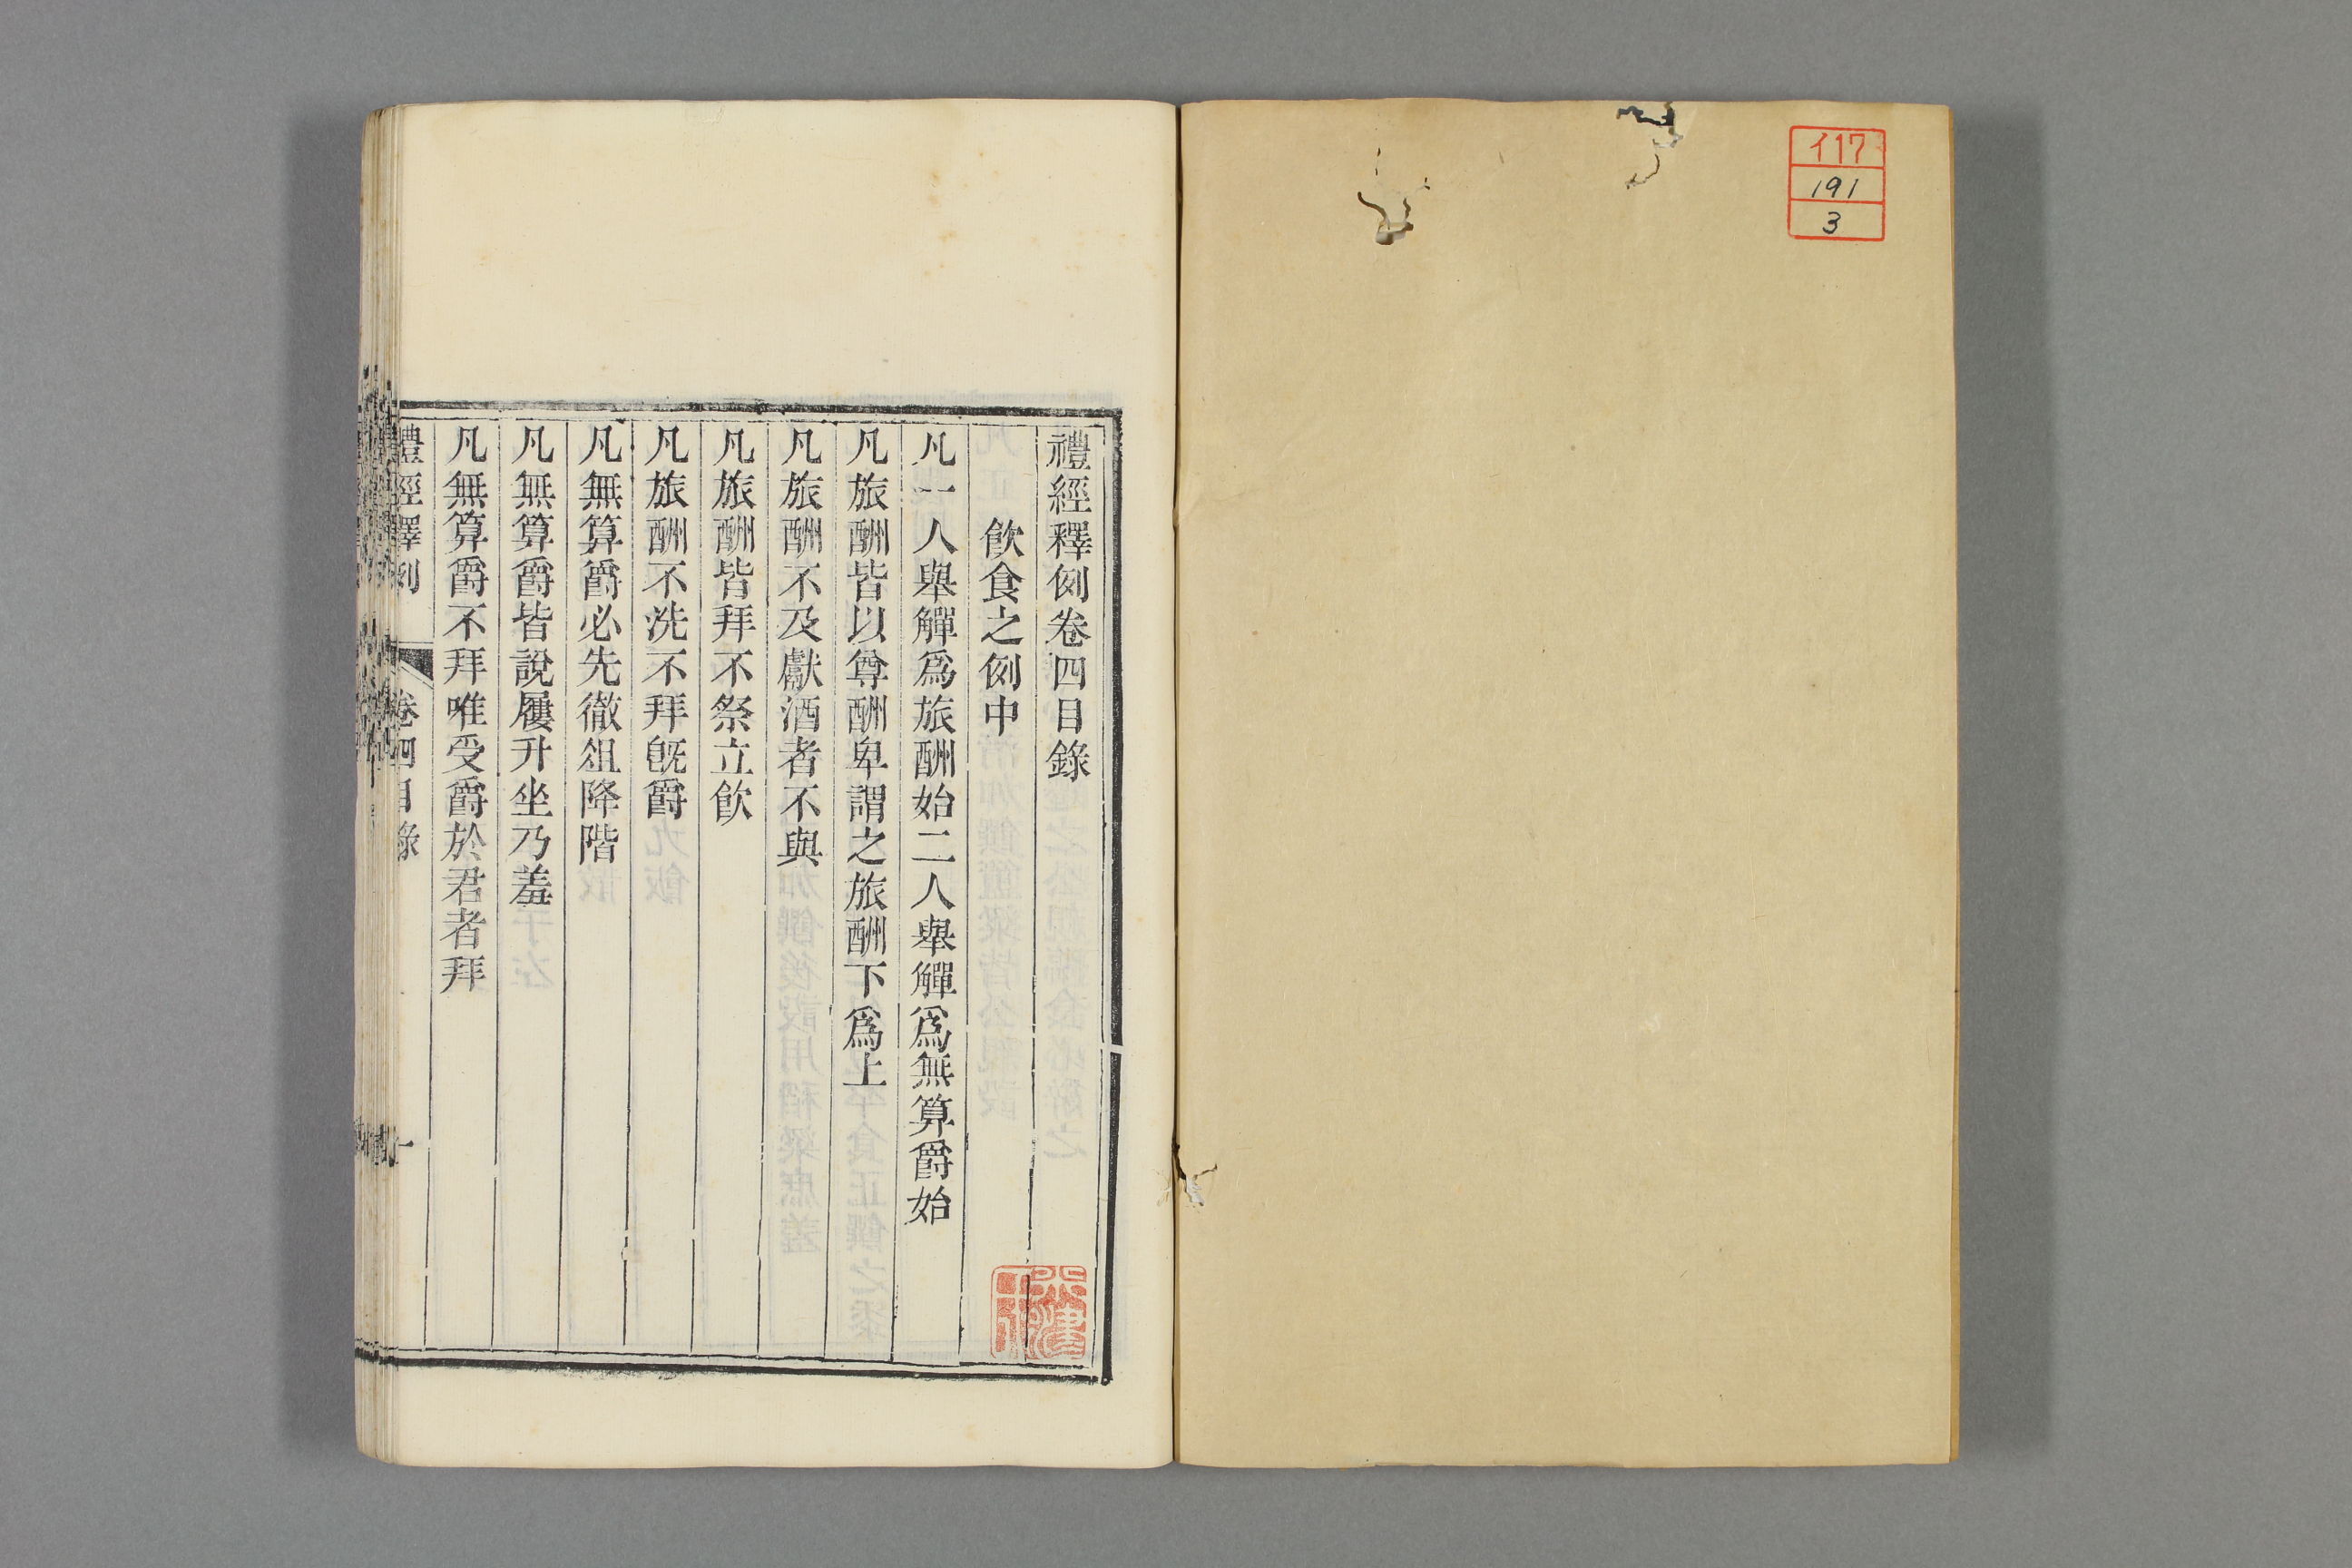 イ17
191
3
禮經釋例卷四目錄
飮食之例中
凡一人舉觶爲旅酬始二人舉觶爲無算爵始
凡旅酬皆以尊酬卑謂之旅酬下爲上
凡旅酬不及獻酒者不與
凡旅酬皆拜不祭立飮
凡旅酬不洗不拜旣爵
凡無算爵必先徹俎降階
凡無算爵皆說屨升坐乃羞
凡無算爵不拜唯受爵於君者拜
禮經釋例
卷四目錄
一